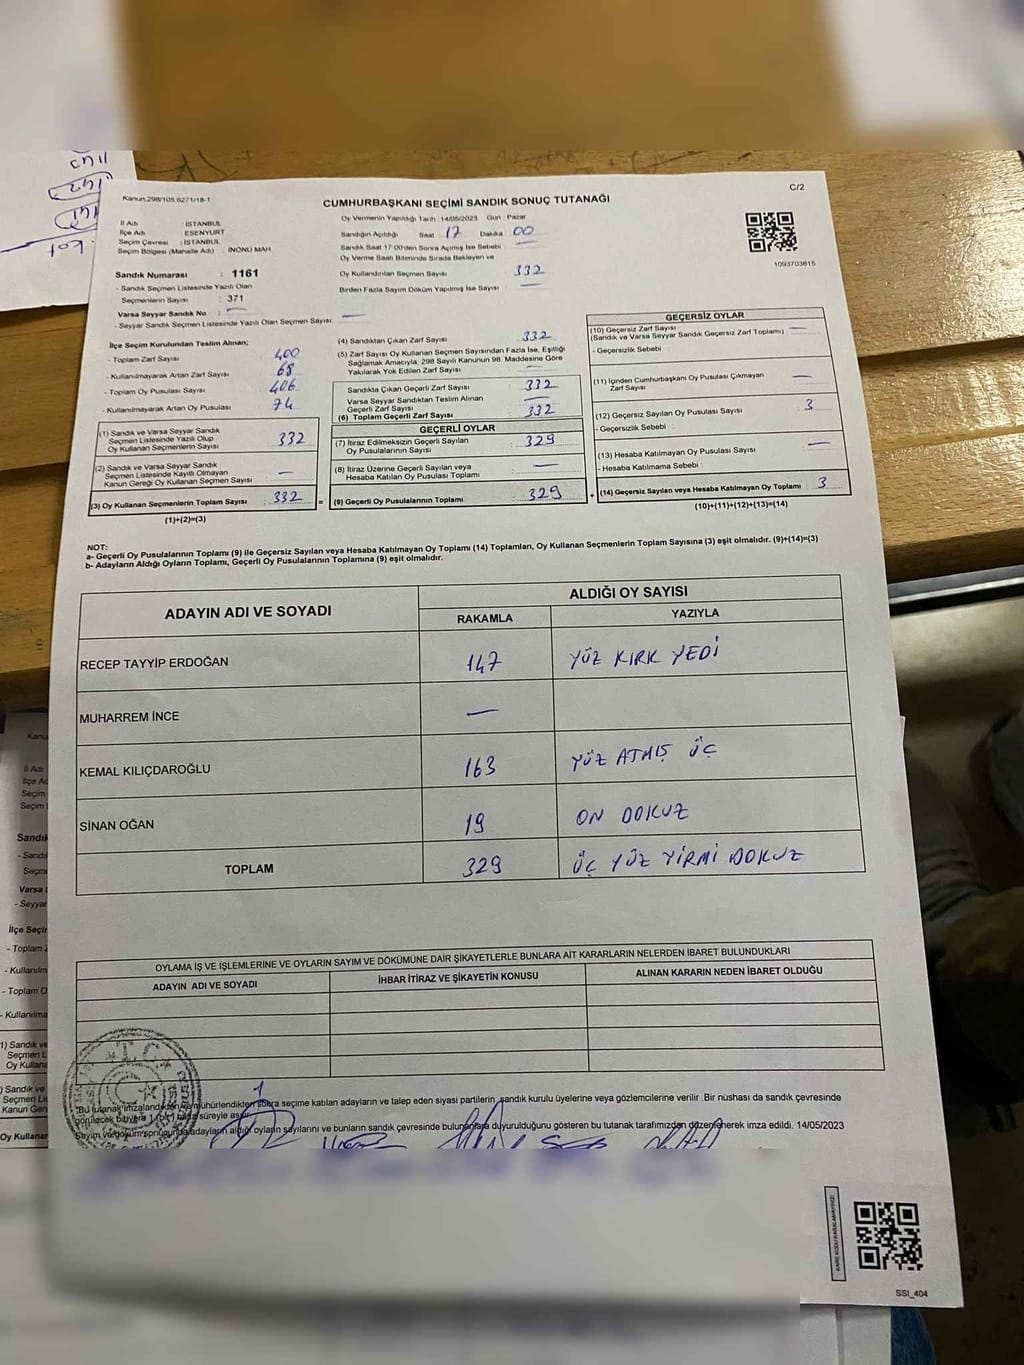 Kanun:298/105,6271/18-1
CUMHURBAŞKANI SEÇİMİ SANDIK SONUÇ TUTANAĞI
C/2
İl Adı : İSTANBUL
İlçe Adı : ESENYURT
Seçim Çevresi : İSTANBUL
Seçim Bölgesi (Mahalle Adı) : İNÖNÜ MAH
Sandık Numarası : 1161
- Sandık Seçmen Listesinde Yazılı Olan
Seçmenlerin Sayısı : 371
Varsa Seyyar Sandık No : —
- Seyyar Sandık Seçmen Listesinde Yazılı Olan Seçmen Sayısı: —
Oy Vermenin Yapıldığı Tarih :14/05/2023 Gün : Pazar
Sandığın Açıldığı Saat 17 Dakika 00
Sandık Saat 17:00'den Sonra Açılmış İse Sebebi : —
Oy Verme Saati Bitiminde Sırada Bekleyen ve
Oy Kullandırılan Seçmen Sayısı : 332
Birden Fazla Sayım Döküm Yapılmış İse Sayısı : —
1093703815
İlçe Seçim Kurulundan Teslim Alınan;
- Toplam Zarf Sayısı : 400
- Kullanılmayarak Artan Zarf Sayısı : 68
- Toplam Oy Pusulası Sayısı : 406
- Kullanılmayarak Artan Oy Pusulası : 74
(1) Sandık ve Varsa Seyyar Sandık
Seçmen Listesinde Yazılı Olup
Oy Kullanan Seçmenlerin Sayısı : 332
(2) Sandık ve Varsa Seyyar Sandık
Seçmen Listesinde Kayıtlı Olmayan
Kanun Gereği Oy Kullanan Seçmen Sayısı : —
(3) Oy Kullanan Seçmenlerin Toplam Sayısı : 332
(1)+(2)=(3)
(4) Sandıktan Çıkan Zarf Sayısı : 332
(5) Zarf Sayısı Oy Kullanan Seçmen Sayısından Fazla İse, Eşitliği
Sağlamak Amacıyla; 298 Sayılı Kanunun 98. Maddesine Göre
Yakılarak Yok Edilen Zarf Sayısı : —
Sandıkta Çıkan Geçerli Zarf Sayısı : 332
Varsa Seyyar Sandıktan Teslim Alınan
Geçerli Zarf Sayısı : —
(6) Toplam Geçerli Zarf Sayısı : 332
GEÇERLİ OYLAR
(7) İtiraz Edilmeksizin Geçerli Sayılan
Oy Pusulasının Sayısı : 329
(8) İtiraz Üzerine Geçerli Sayılan veya
Hesaba Katılan Oy Pusulası Toplamı : —
= (9) Geçerli Oy Pusulalarının Toplamı : 329
GEÇERSİZ OYLAR
(10) Geçersiz Zarf Sayısı : —
(Sandık ve Varsa Seyyar Sandık Geçersiz Zarf Toplamı)
- Geçersizlik Sebebi :
(11) İçinden Cumhurbaşkanı Oy Pusulası Çıkmayan
Zarf Sayısı : —
(12) Geçersiz Sayılan Oy Pusulası Sayısı : 3
- Geçersizlik Sebebi :
(13) Hesaba Katılmayan Oy Pusulası Sayısı : —
- Hesaba Katılmama Sebebi :
+ (14) Geçersiz Sayılan veya Hesaba Katılmayan Oy Toplamı : 3
(10)+(11)+(12)+(13)=(14)
NOT:
a- Geçerli Oy Pusulalarının Toplamı (9) ile Geçersiz Sayılan veya Hesaba Katılmayan Oy Toplamı (14) Toplamları, Oy Kullanan Seçmenlerin Toplam Sayısına (3) eşit olmalıdır. (9)+(14)=(3)
b- Adayların Aldığı Oyların Toplamı, Geçerli Oy Pusulalarının Toplamına (9) eşit olmalıdır.
ADAYIN ADI VE SOYADI
ALDIĞI OY SAYISI
RAKAMLA YAZIYLA
RECEP TAYYİP ERDOĞAN 147 YÜZ KIRK YEDİ
MUHARREM İNCE —
KEMAL KILIÇDAROĞLU 163 YÜZ ATMIŞ ÜÇ
SİNAN OĞAN 19 ON DOKUZ
TOPLAM 329 ÜÇ YÜZ YİRMİ DOKUZ
OYLAMA İŞ VE İŞLEMLERİNE VE OYLARIN SAYIM VE DÖKÜMÜNE DAİR ŞİKAYETLERLE BUNLARA AİT KARARLARIN NELERDEN İBARET BULUNDUKLARI
ADAYIN ADI VE SOYADI İHBAR İTİRAZ VE ŞİKAYETİN KONUSU ALINAN KARARIN NEDEN İBARET OLDUĞU
T.C.
Bu tutanak imzalandıktan mühürlendikten sonra seçime katılan adayların ve talep eden siyasi partilerin sandık kurulu üyelerine veya gözlemcilerine verilir .Bir nüshası da sandık çevresinde
görülecek bir yere 1 (bir) hafta süreyle asılır.
Sayım ve döküm sonucunda adayların aldığı oyların sayılarını ve bunların sandık çevresinde bulunanlara duyurulduğunu gösteren bu tutanak tarafımızdan düzenlenerek imza edildi. 14/05/2023
SSI_404